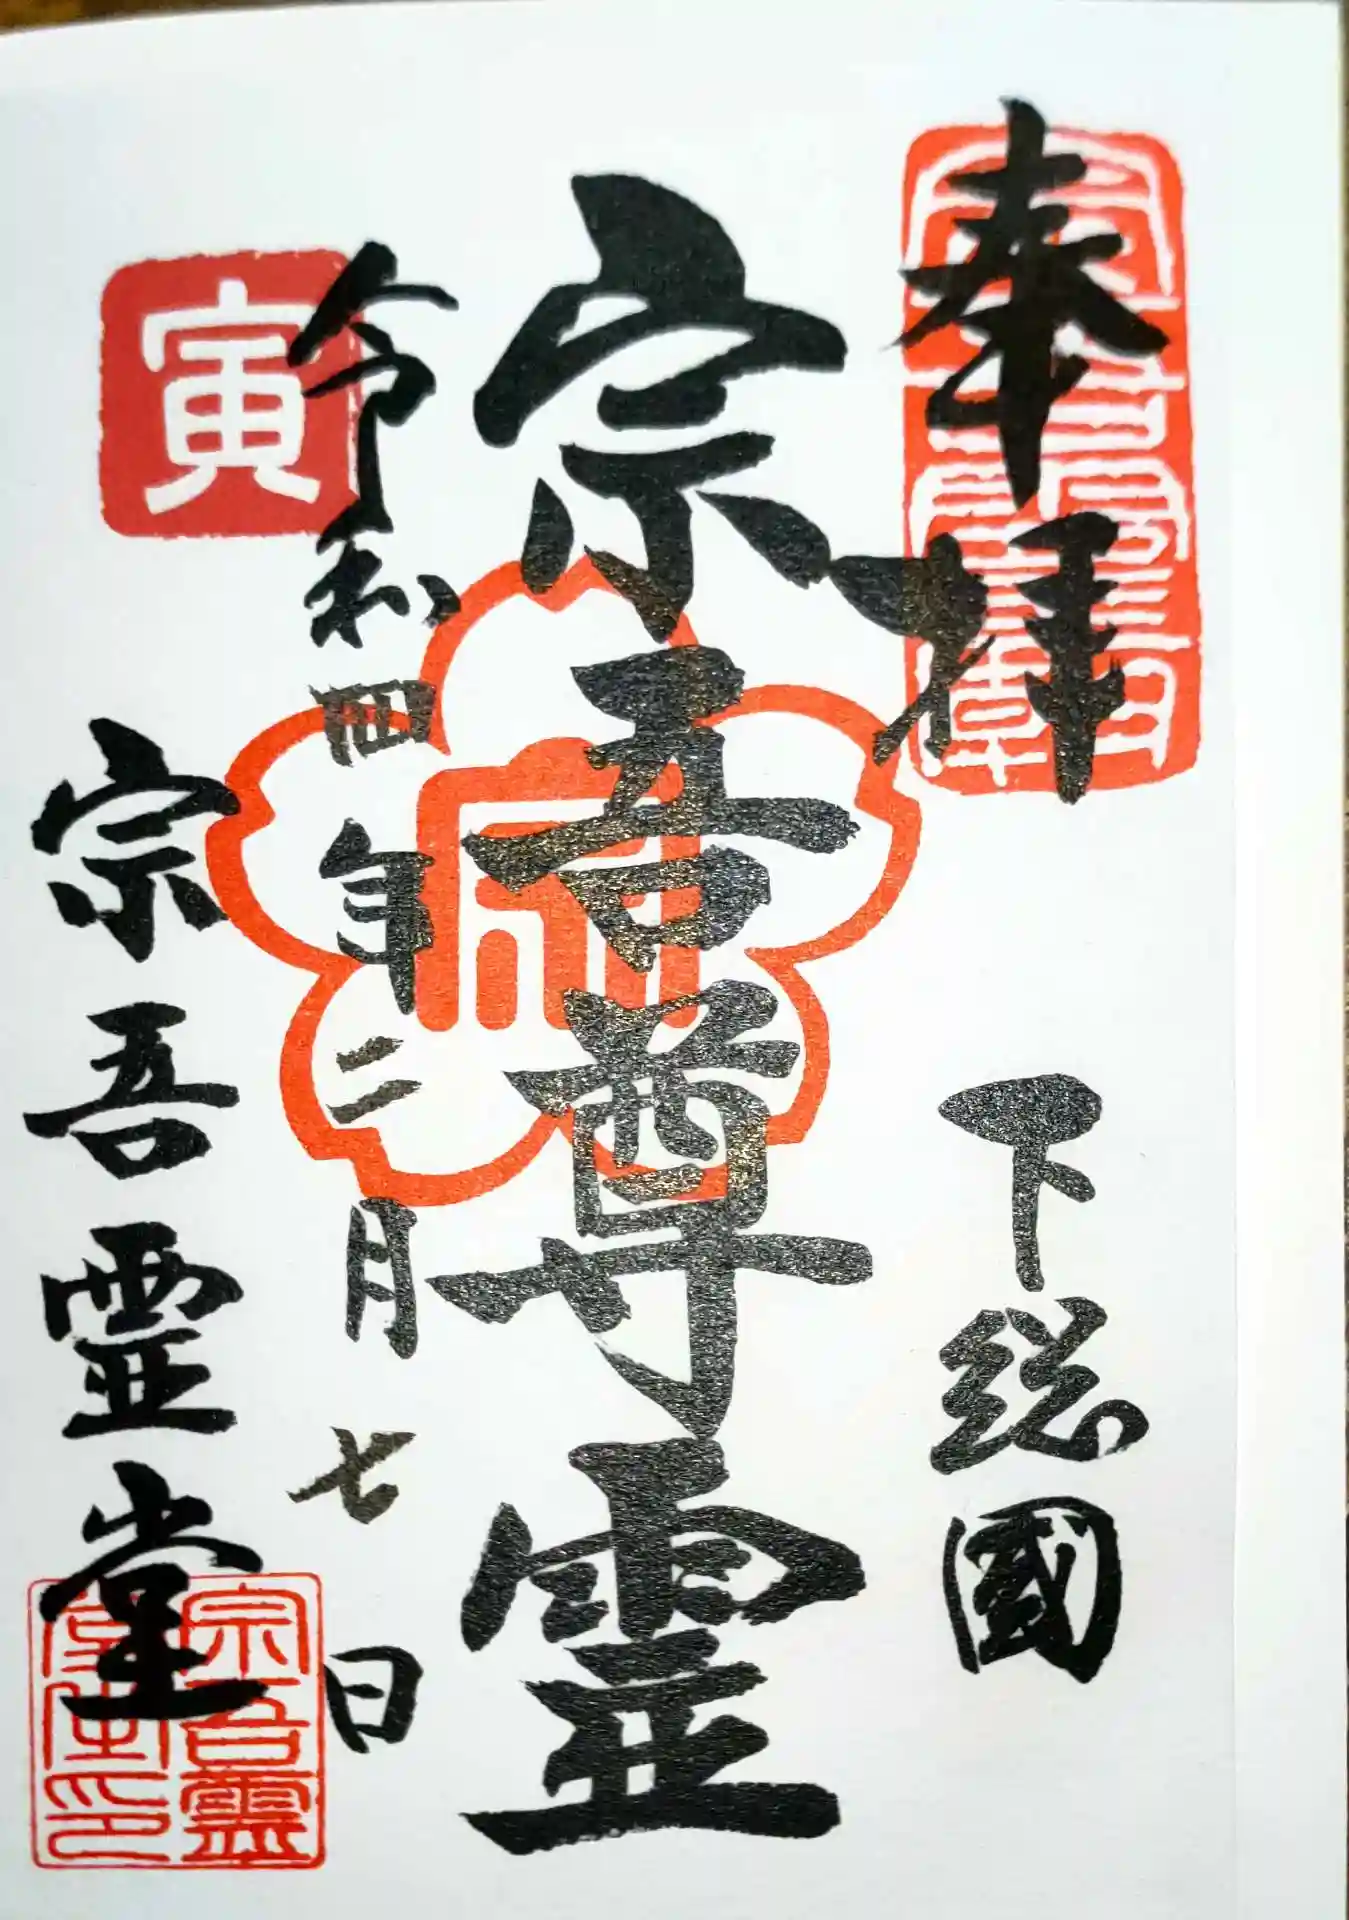 奉拝
下総國
宗吾尊霊
令和四年二月七日
寅
宗吾霊堂
宗吾霊
堂主印